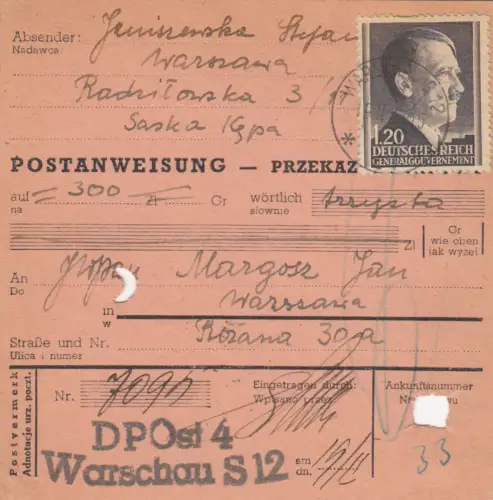 Absender: Janiszewska Stefan
Nadawca:
Warszawa
Radziłowska 3/
Saska Kępa
WAR
1.20
DEUTSCHES REICH
GENERALGOUVERNEMENT
POSTANWEISUNG — PRZEKAZ
auf = 300 = Zł Gr wörtlich trzysta
na słownie
Zl Gr
wie oben
jak wyżej
An Margosz Jan
Do
in Warszawa
w
Straße und Nr. Różana 30a
Ulica i numer
Postvermerk
Adnotacje urz. poczt.
Nr. 7095
Eingetragen durch:
Wpisano przez
Ankunftsnummer
DPOst 4
Warschau S 12
am
dn.
33